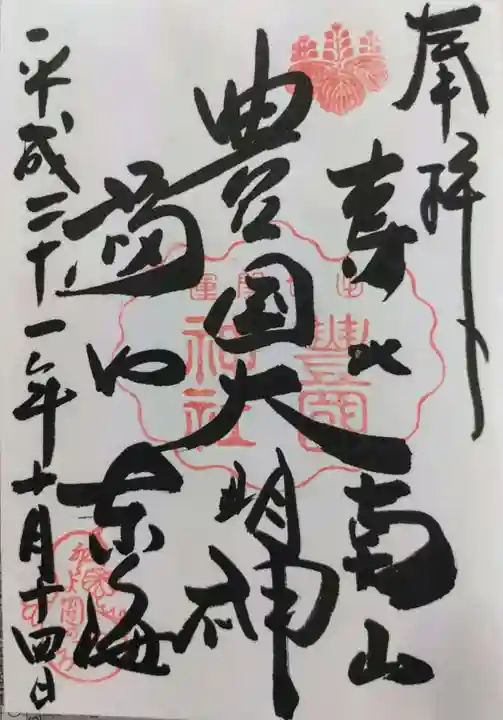 奉拝
寿比南山
豊国大明神
福如東海
平成二十一年十月十四日
出世開運
豐國
神社